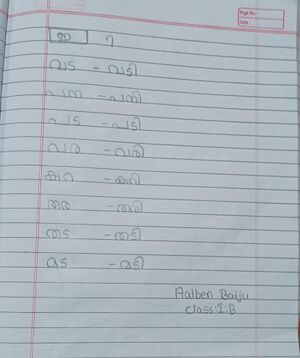 Page No.
Date
ഇ ി
വട - വടി
പന - പനി
പട - പടി
വര - വരി
കറ - കറി
തര - തരി
തട - തടി
മട - മടി
Aalben Baiju
class: I.B